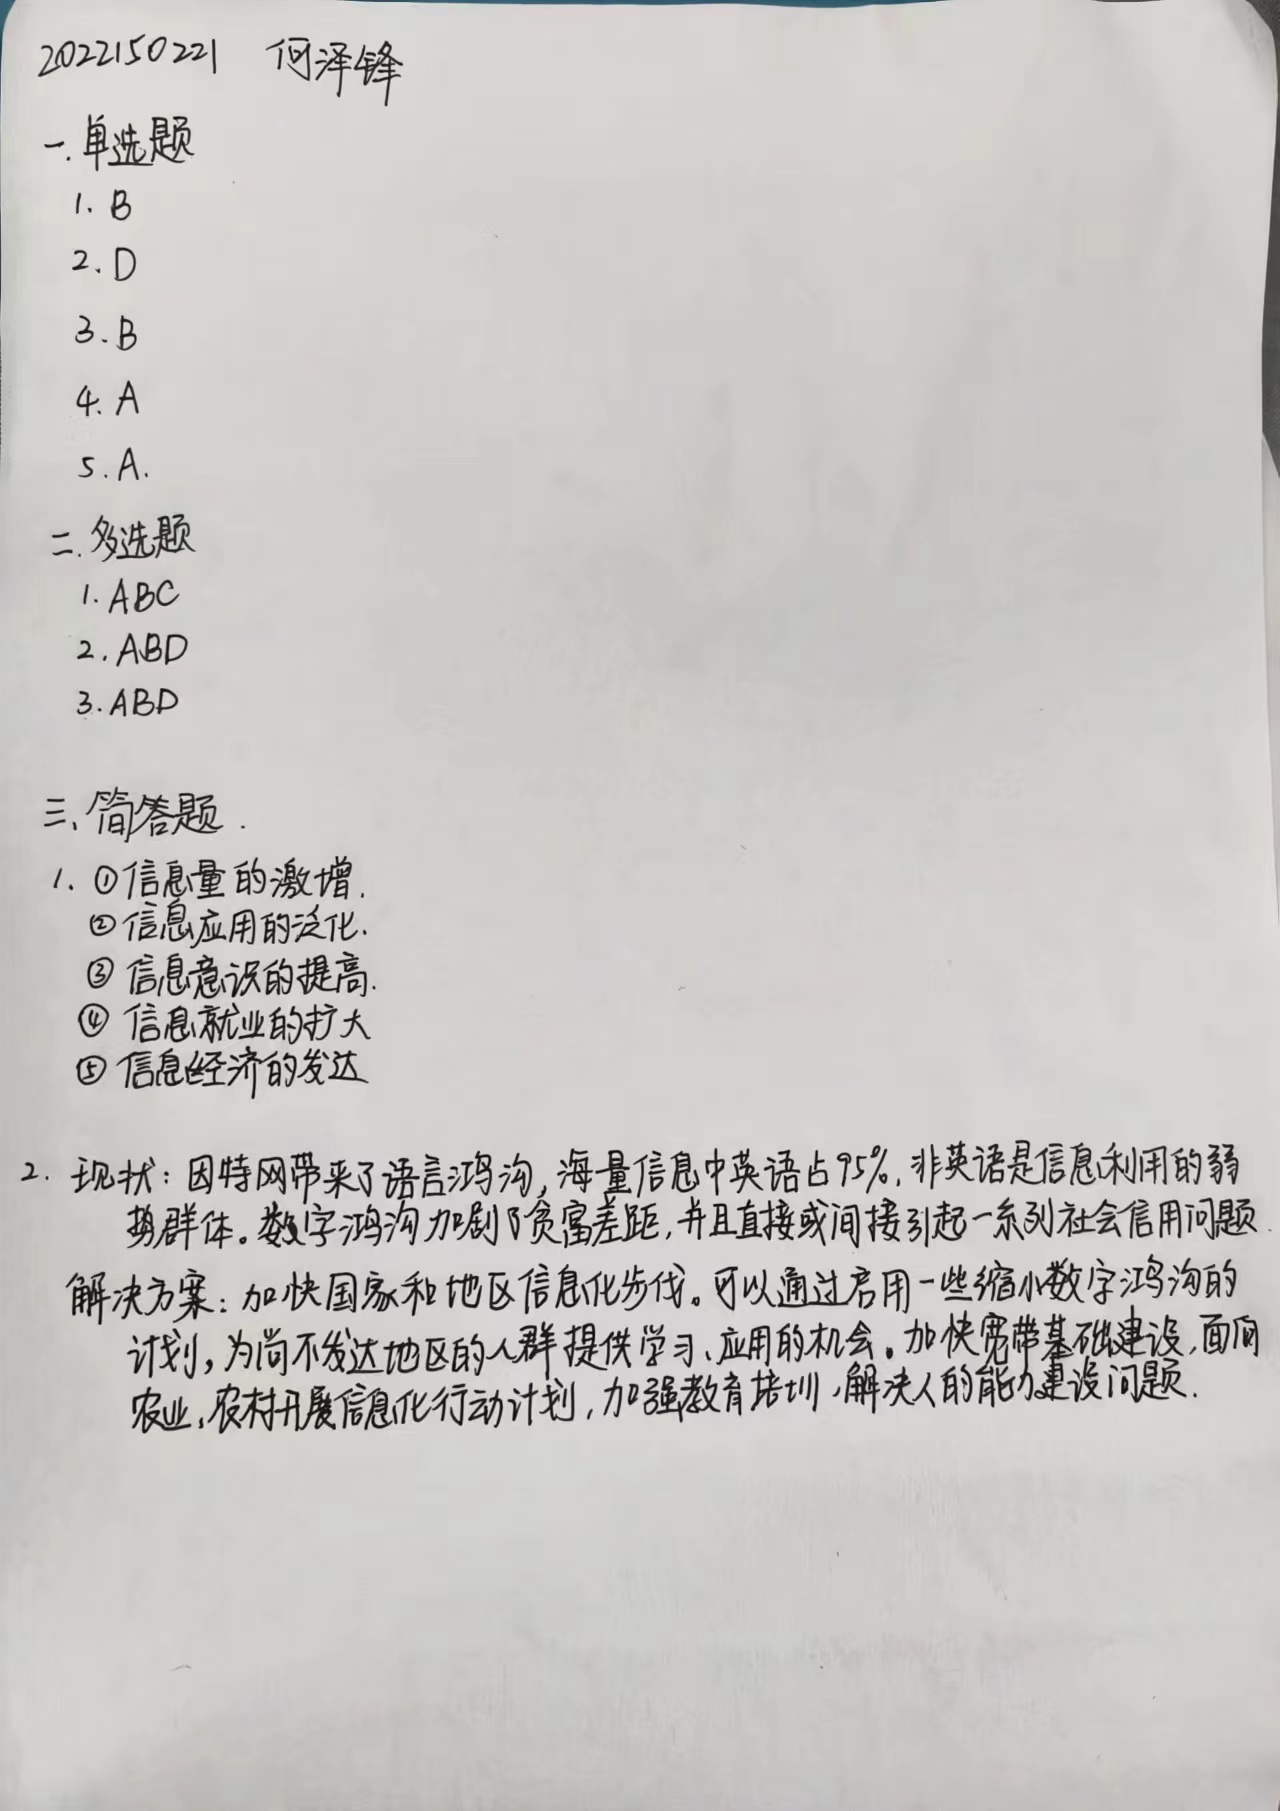 2022150221 何泽锋
一.单选题
1. B
2. D
3. B
4. A
5. A.
二.多选题
1. ABC
2. ABD
3. ABD
三、简答题.
1. ①信息量的激增.
②信息应用的泛化.
③信息意识的提高.
④信息就业的扩大
⑤信息经济的发达
2. 现状：因特网带来了语言鸿沟,海量信息中英语占95%,非英语是信息利用的弱
势群体。数字鸿沟加剧了贫富差距,并且直接或间接引起一系列社会信用问题.
解决方案：加快国家和地区信息化步伐。可以通过启用一些缩小数字鸿沟的
计划,为尚不发达地区的人群提供学习、应用的机会。加快宽带基础建设,面向
农业,农村开展信息化行动计划,加强教育培训,解决人的能力建设问题.